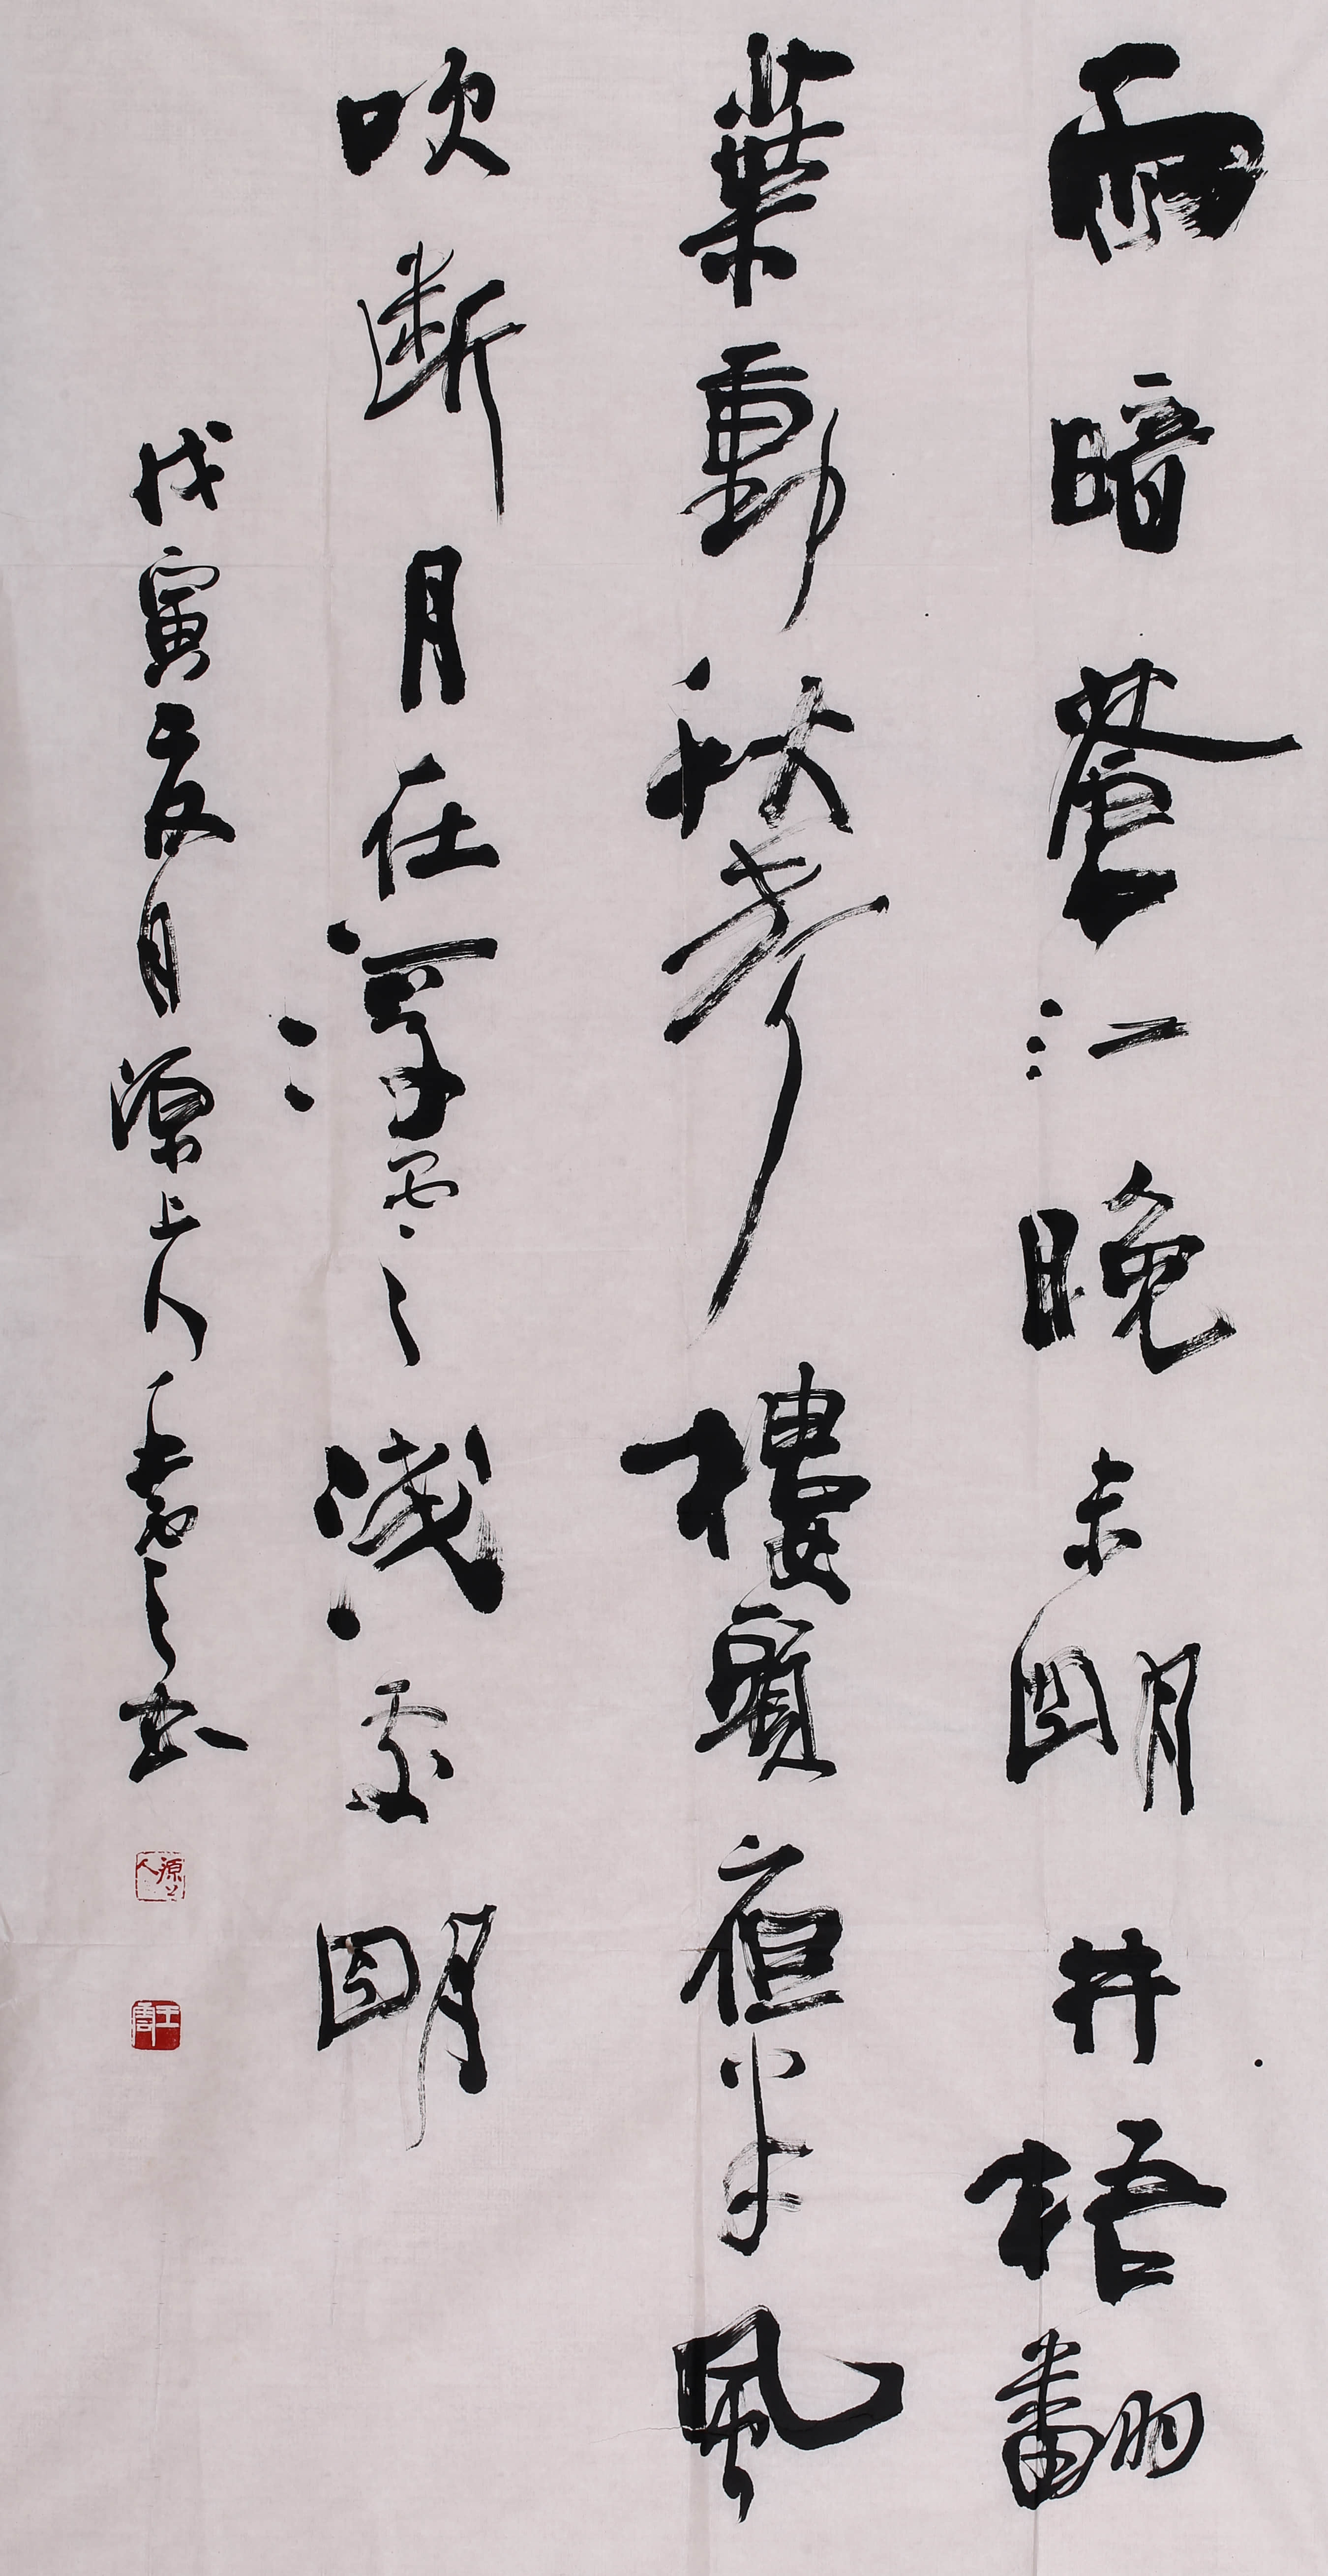 雨暗蒼江晚未明井梧翻
葉動秋声樓頭夜半風
吹斷月在浮雲淺處明
戊寅夏月源上人王書
源上人
王